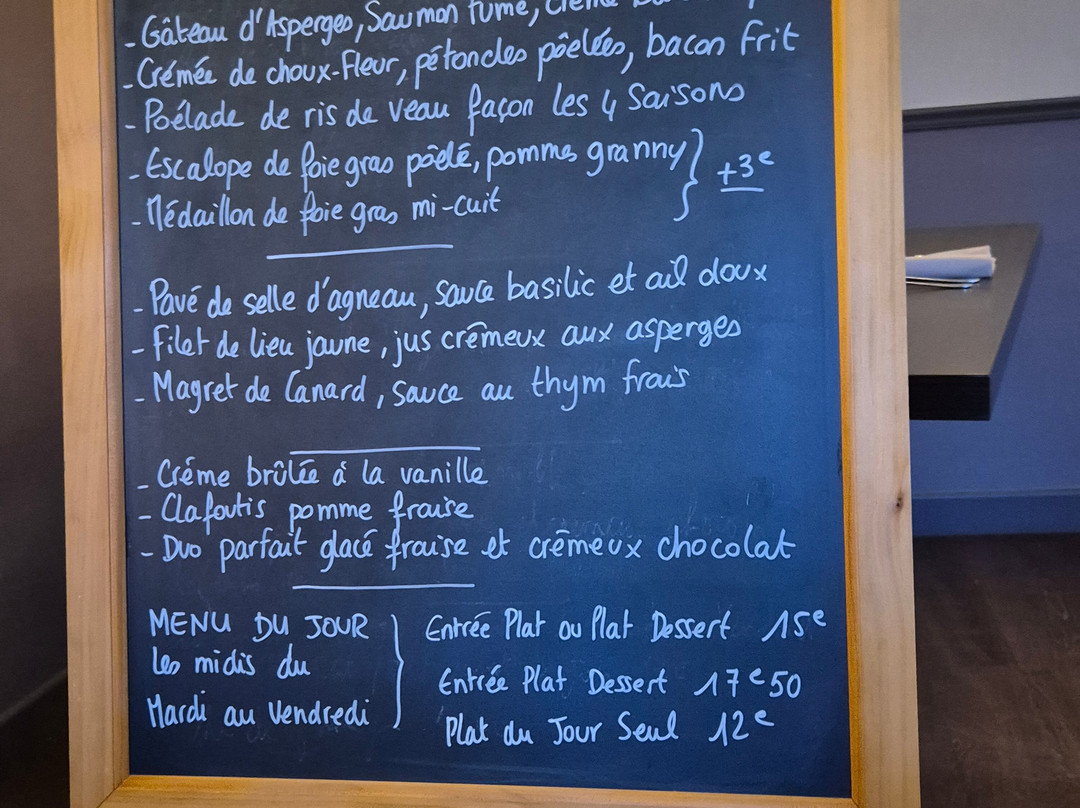 - Gâteau d'Asperges, Saumon fumé, Crème
- Crémée de choux-Fleur, pétoncles pôelées, bacon frit
- Poélade de ris de veau façon les 4 Saisons
- Escalope de foie gras pôélé, pommes granny
+3€
- Médaillon de foie gras mi-cuit
- Pavé de selle d'agneau, sauce basilic et ail doux
- Filet de lieu jaune, jus crêmeux aux asperges
- Magret de Canard, sauce au thym frais
- Créme brûlée à la vanille
- Clafoutis pomme fraise
- Duo parfait glacé fraise et crêmeux chocolat
MENU DU JOUR
Les midis du
Mardi au Vendredi
Entrée Plat ou Plat Dessert 15€
Entrée Plat Dessert 17€50
Plat du Jour Seul 12€